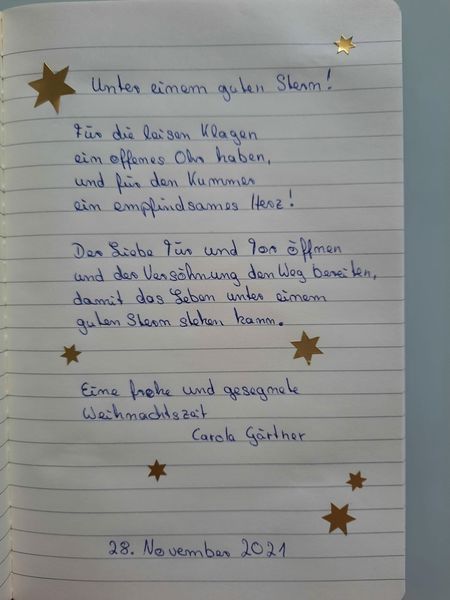 Unter einem guten Stern!
Für die leisen Klagen
ein offenes Ohr haben,
und für den Kummer
ein empfindsames Herz!
Der Liebe Tür und Tor öffnen
und der Versöhnung den Weg bereiten,
damit das Leben unter einem
guten Stern stehen kann.
Eine frohe und gesegnete
Weihnachtszeit
Carola Gärtner
28. November 2021